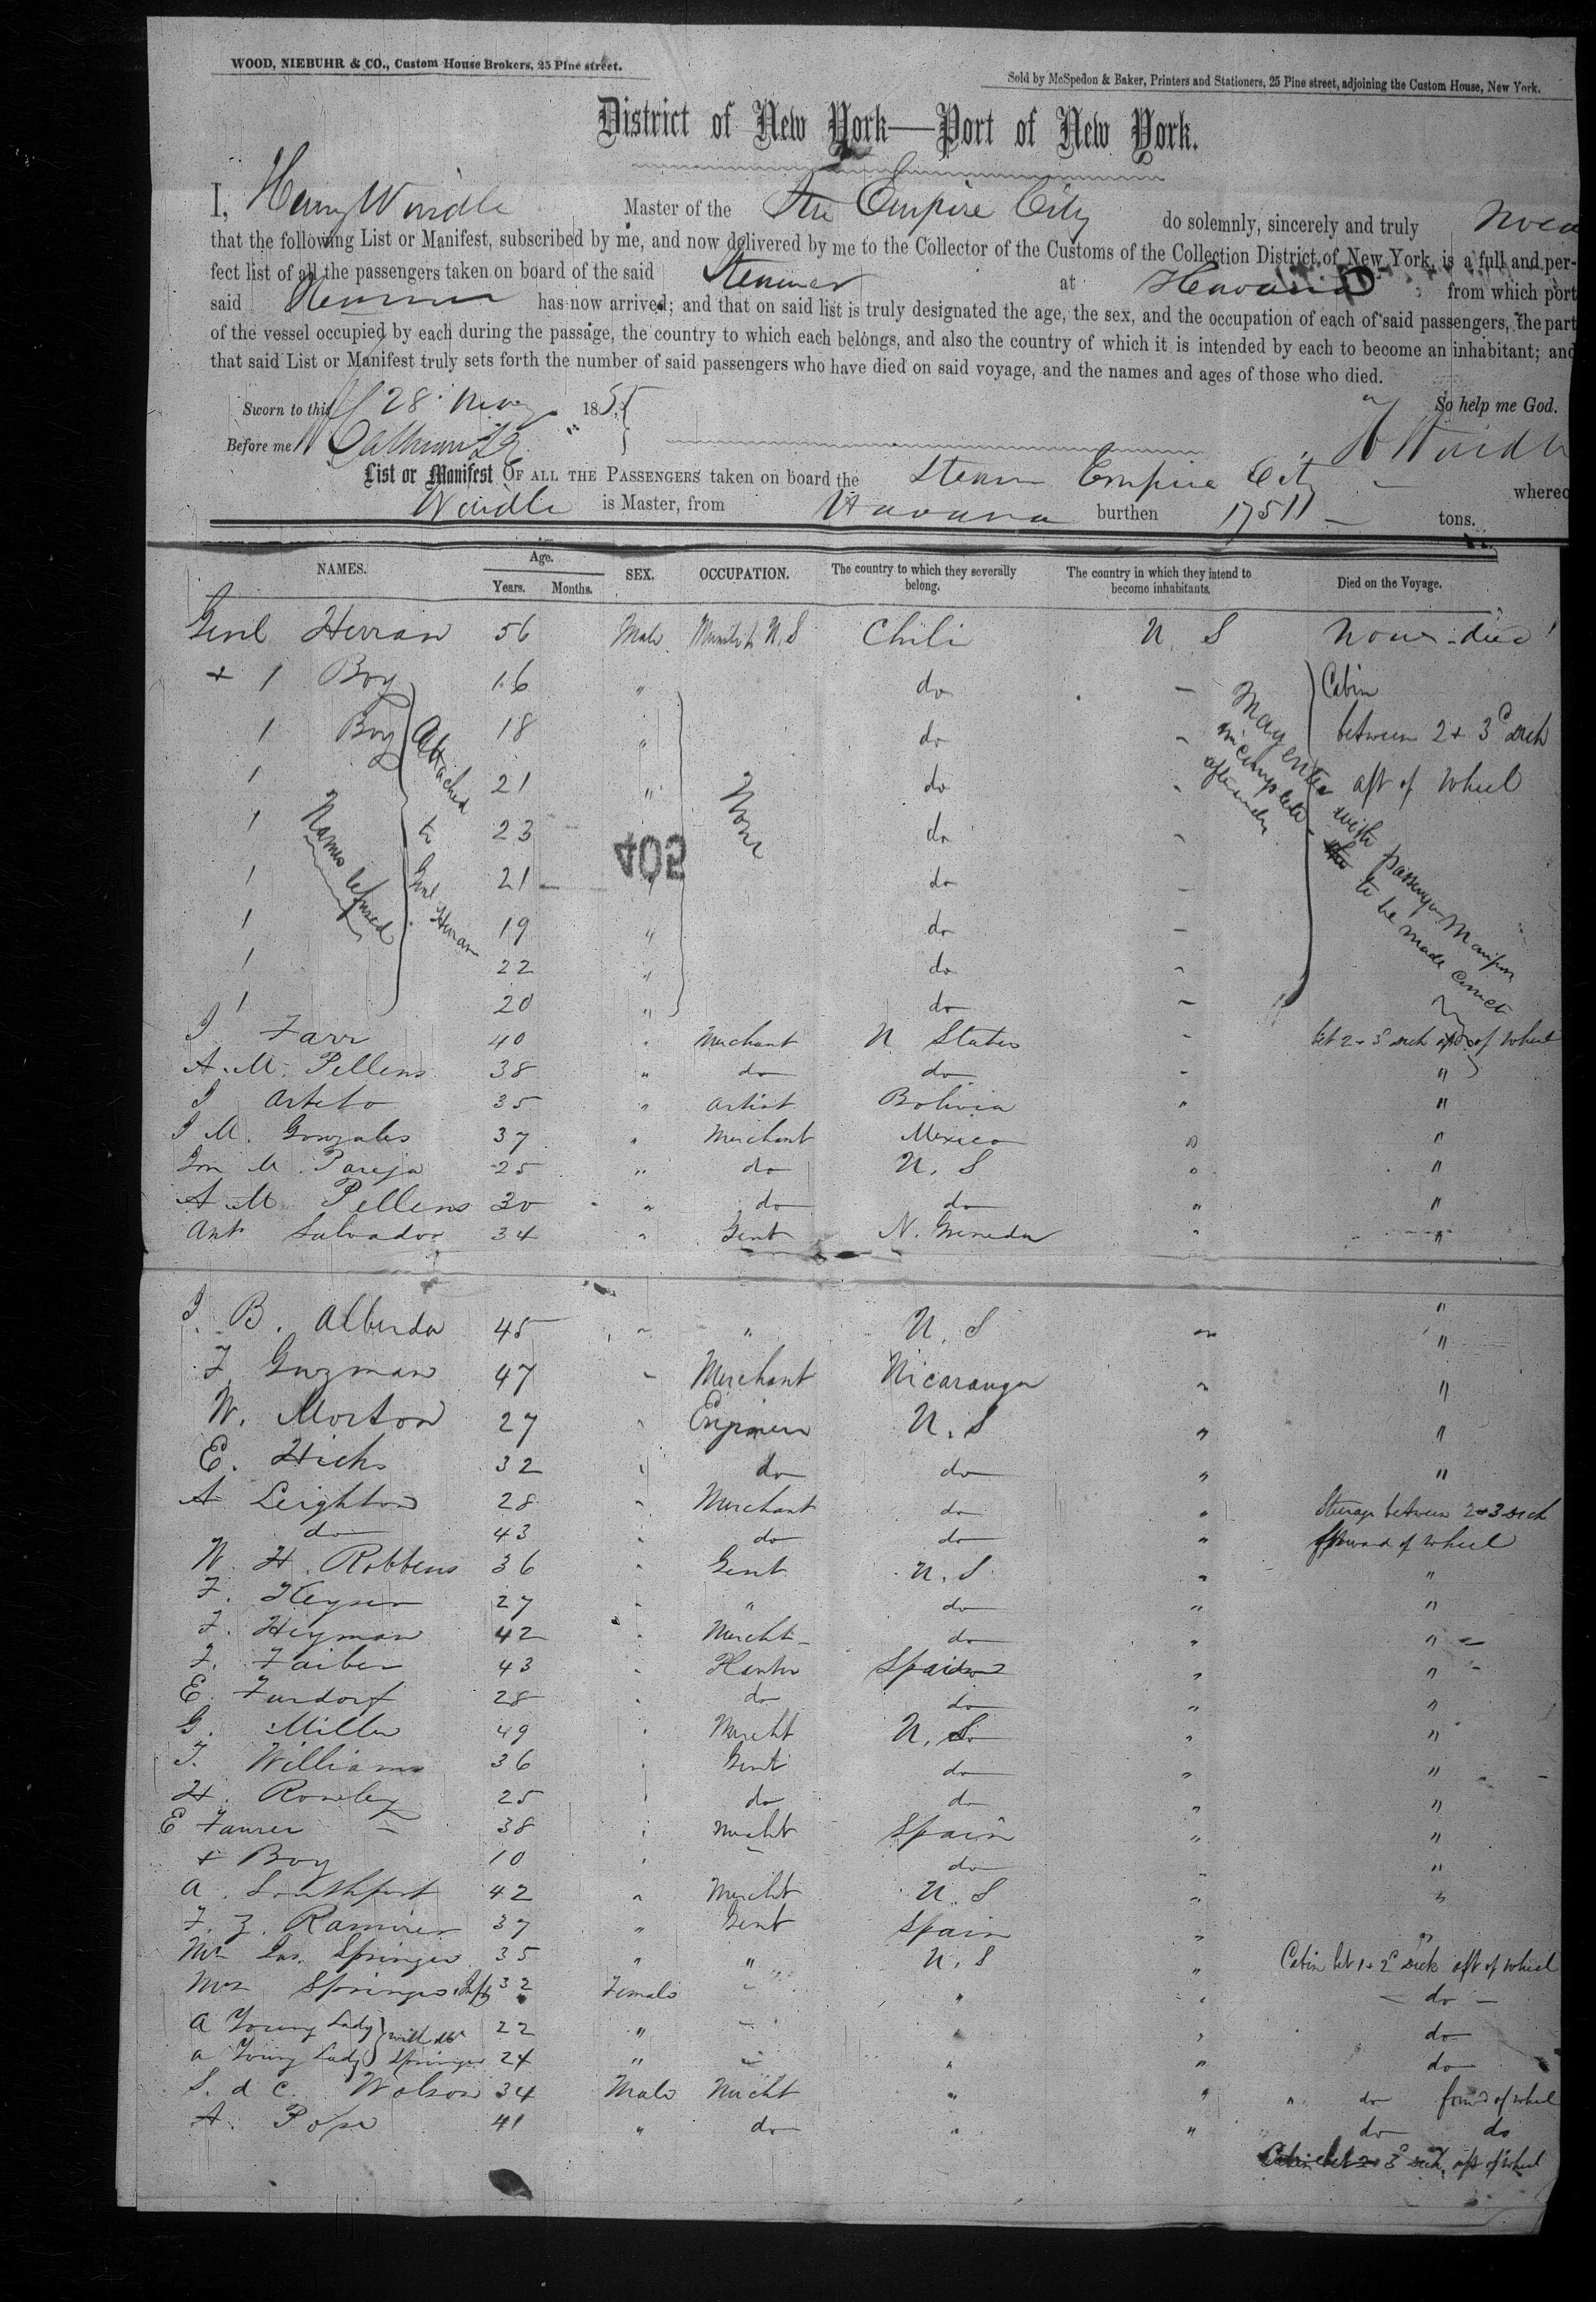 WOOD, NIEBUHR & CO., Custom House Brokers, 25 Pine street.
Sold by McSpedon & Baker, Printers and Stationers, 25 Pine street, adjoining the Custom House, New York.
District of New York—Port of New York.
I, Henry Windle Master of the Str Empire City do solemnly, sincerely and truly
that the following List or Manifest, subscribed by me, and now delivered by me to the Collector of the Customs of the Collection District of New York, is a full and per-
fect list of all the passengers taken on board of the said Steamer at Havana from which port
said Steamer has now arrived; and that on said list is truly designated the age, the sex, and the occupation of each of said passengers, the part
of the vessel occupied by each during the passage, the country to which each belongs, and also the country of which it is intended by each to become an inhabitant; and
that said List or Manifest truly sets forth the number of said passengers who have died on said voyage, and the names and ages of those who died.
Sworn to this 28 Nov 1855 So help me God.
Before me H Windle
List or Manifest OF ALL THE PASSENGERS taken on board the Steam Empire City whereo
Windle is Master, from Havana burthen 1751 tons.
NAMES. Age. Years. Months. SEX. OCCUPATION. The country to which they severally belong. The country in which they intend to become inhabitants. Died on the Voyage.
Genl Herran 56 Male U S Chili U S None died
+ 1 Boy 16 " do - Cabin
1 Boy 18 " do - between 2 & 3d deck
1 21 " do - aft of Wheel
1 23 do -
1 21 " do -
1 19 " do -
1 22 " do -
1 20 " do -
Names refused
Attached to Genl Herran
None
402
May enter with passengers
to be made correct
J Farr 40 " Merchant U States - bet 2 & 3 deck aft of Wheel
A. M. Pellens 38 " do do - "
J Arteto 35 " Artist Bolivia " "
J M. Gonzales 37 " Merchant Mexico " "
M. Pareja 25 " do U. S " "
A M Pellens 30 " do do " "
Ant Salvador 34 " Gent N. Grenada " "
J. B. Alburda 45 " " U. S " "
F. Guzman 47 " Merchant Nicaragua " "
W. Morton 27 " Engineer U. S " "
E. Hicks 32 " do do " "
A Leighton 28 " Merchant do " Steerage between 2 & 3 deck
do 43 " do do " forward of Wheel
W. H. Robbens 36 " Gent U. S " "
F. Keyser 27 " " do " "
F. Heyman 42 " Mercht do " "
F. Faiber 43 " Planter Spain " "
E. Furdorf 28 " do do " "
G. Miller 49 " Mercht U. S " "
T. Williams 36 " Gent do " "
H. Rowley 25 " do do " "
E Faurer 38 " Mercht Spain " "
+ Boy 10 " - do " "
A. Southport 42 " Mercht U. S " "
F. Z. Ramirez 37 " Gent Spain " "
Mr Jas. Springer 35 " " U. S " Cabin bet 1 & 2d deck aft of wheel
Mrs Springer 32 Female - " " do -
A Young Lady 22 " - " " do
A Young Lady 24 " - " " do
with Mr Springer
S. d C. Wolson 34 Male Mercht " " " do forwd of wheel
A. Pope 41 " do " " do do
Cabin bet 2 & 3d deck, aft of Wheel